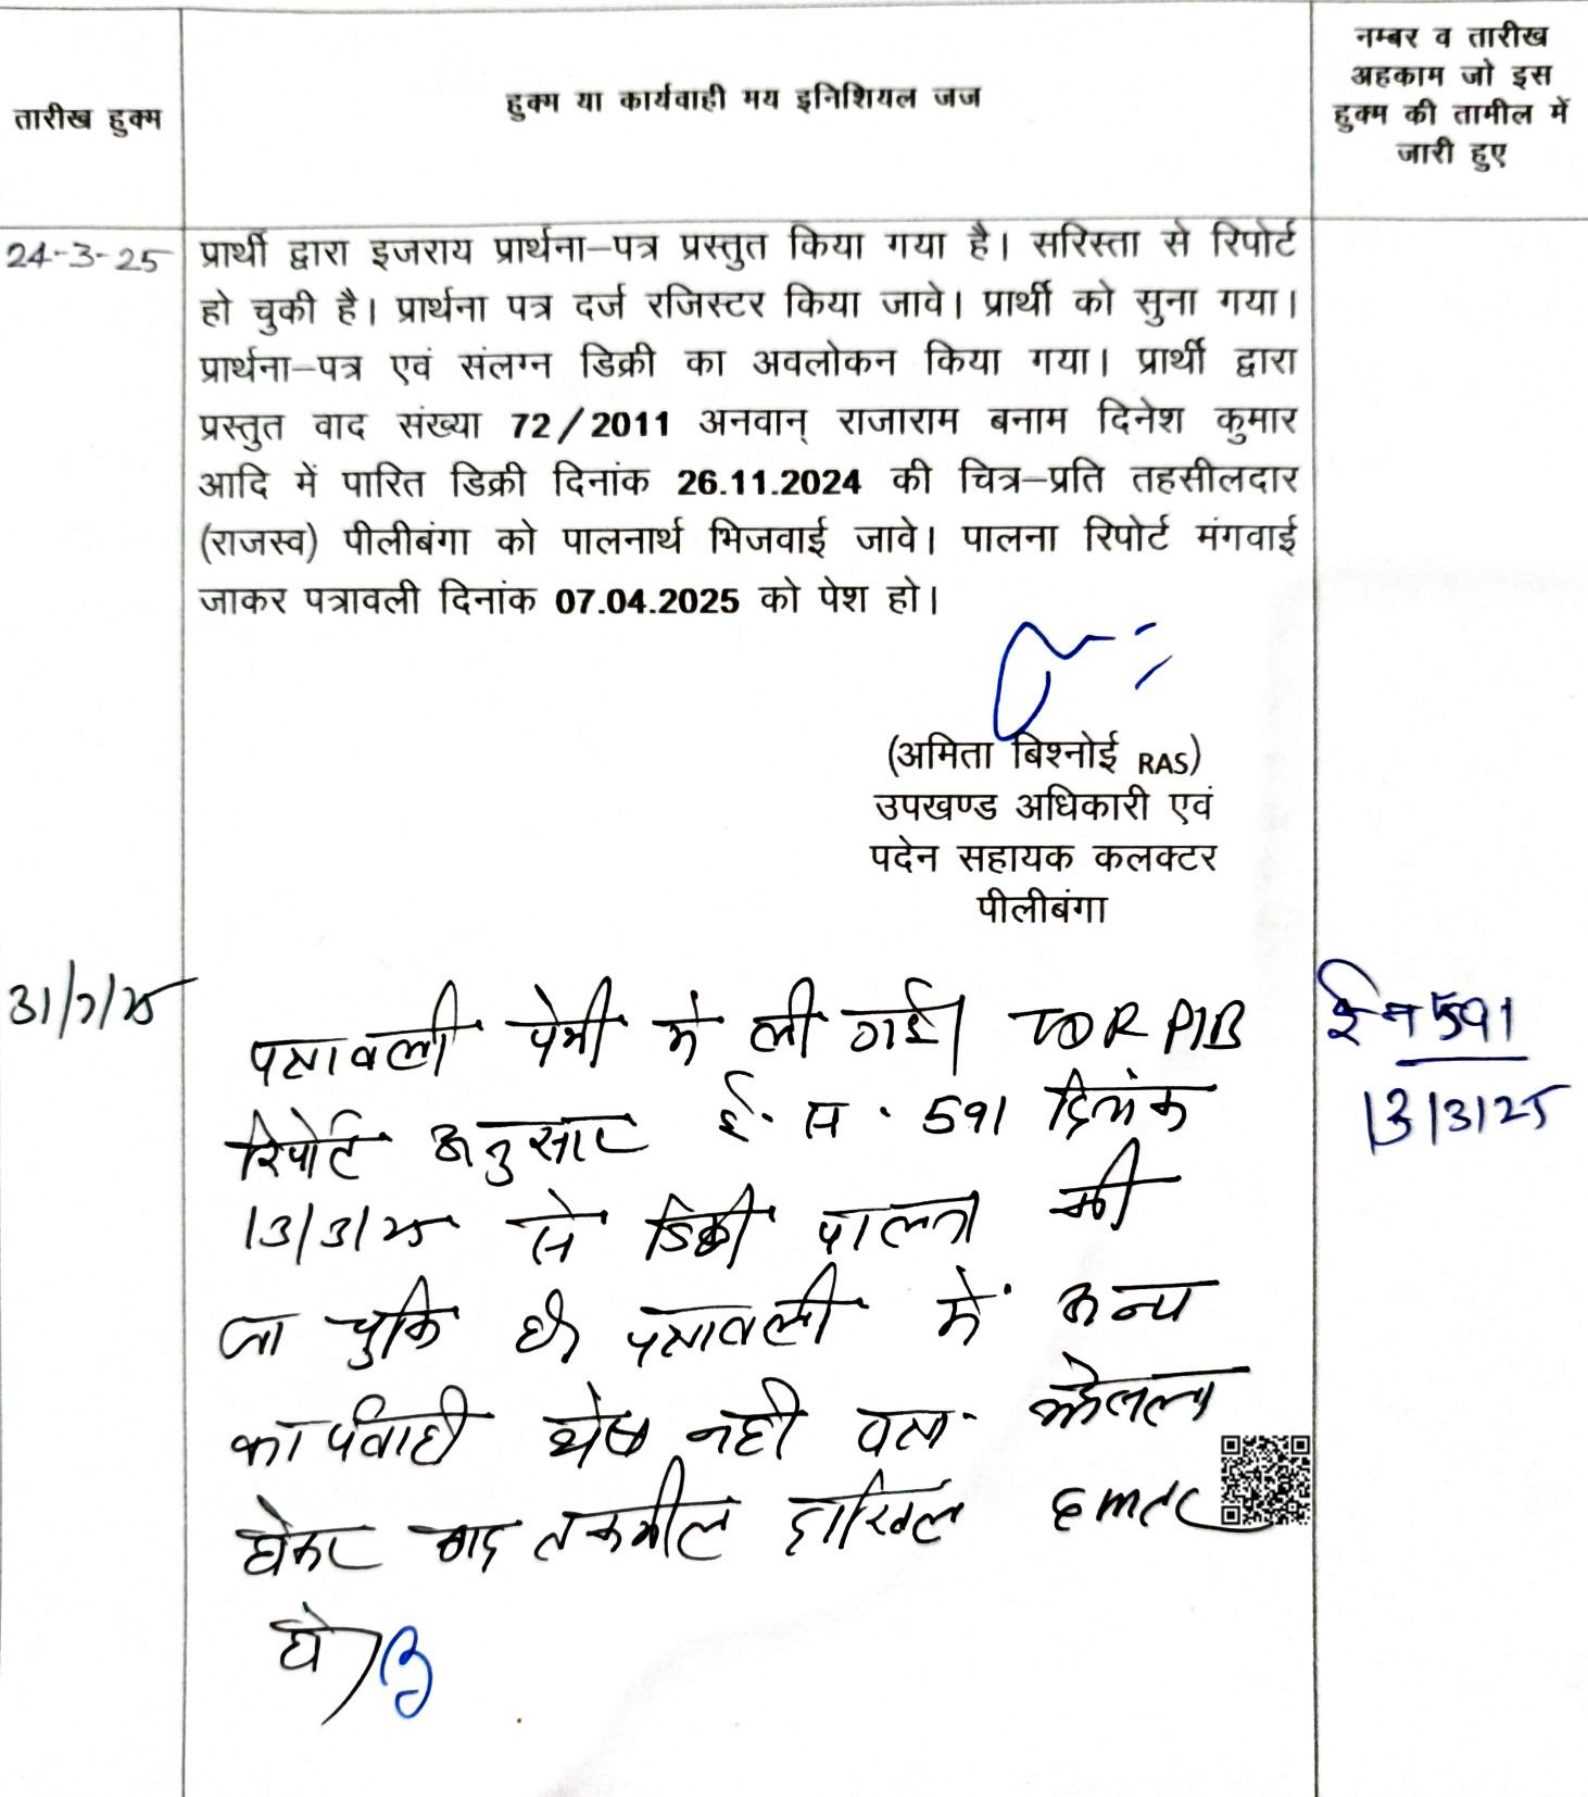 तारीख हुक्म
हुक्म या कार्यवाही मय इनिशियल जज
नम्बर व तारीख
अहकाम जो इस
हुक्म की तामील में
जारी हुए
24-3-25
प्रार्थी द्वारा इजराय प्रार्थना–पत्र प्रस्तुत किया गया है। सरिस्ता से रिपोर्ट
हो चुकी है। प्रार्थना पत्र दर्ज रजिस्टर किया जावे। प्रार्थी को सुना गया।
प्रार्थना–पत्र एवं संलग्न डिक्री का अवलोकन किया गया। प्रार्थी द्वारा
प्रस्तुत वाद संख्या 72/2011 अनवान् राजाराम बनाम दिनेश कुमार
आदि में पारित डिक्री दिनांक 26.11.2024 की चित्र–प्रति तहसीलदार
(राजस्व) पीलीबंगा को पालनार्थ भिजवाई जावे। पालना रिपोर्ट मंगवाई
जाकर पत्रावली दिनांक 07.04.2025 को पेश हो।
(अमिता बिश्नोई RAS)
उपखण्ड अधिकारी एवं
पदेन सहायक कलक्टर
पीलीबंगा
31/7/25
पत्रावली पेशी मे ली गई। TDR PIB
रिपोर्ट अनुसार ई. स. 591 दिनांक
13/3/25 से डिक्री पालना की
जा चुकि है पत्रावली में अन्य
कार्यवाही शेष नही
होकर बाद तकमील दाखिल
हो।
ई न 591
13/3/25